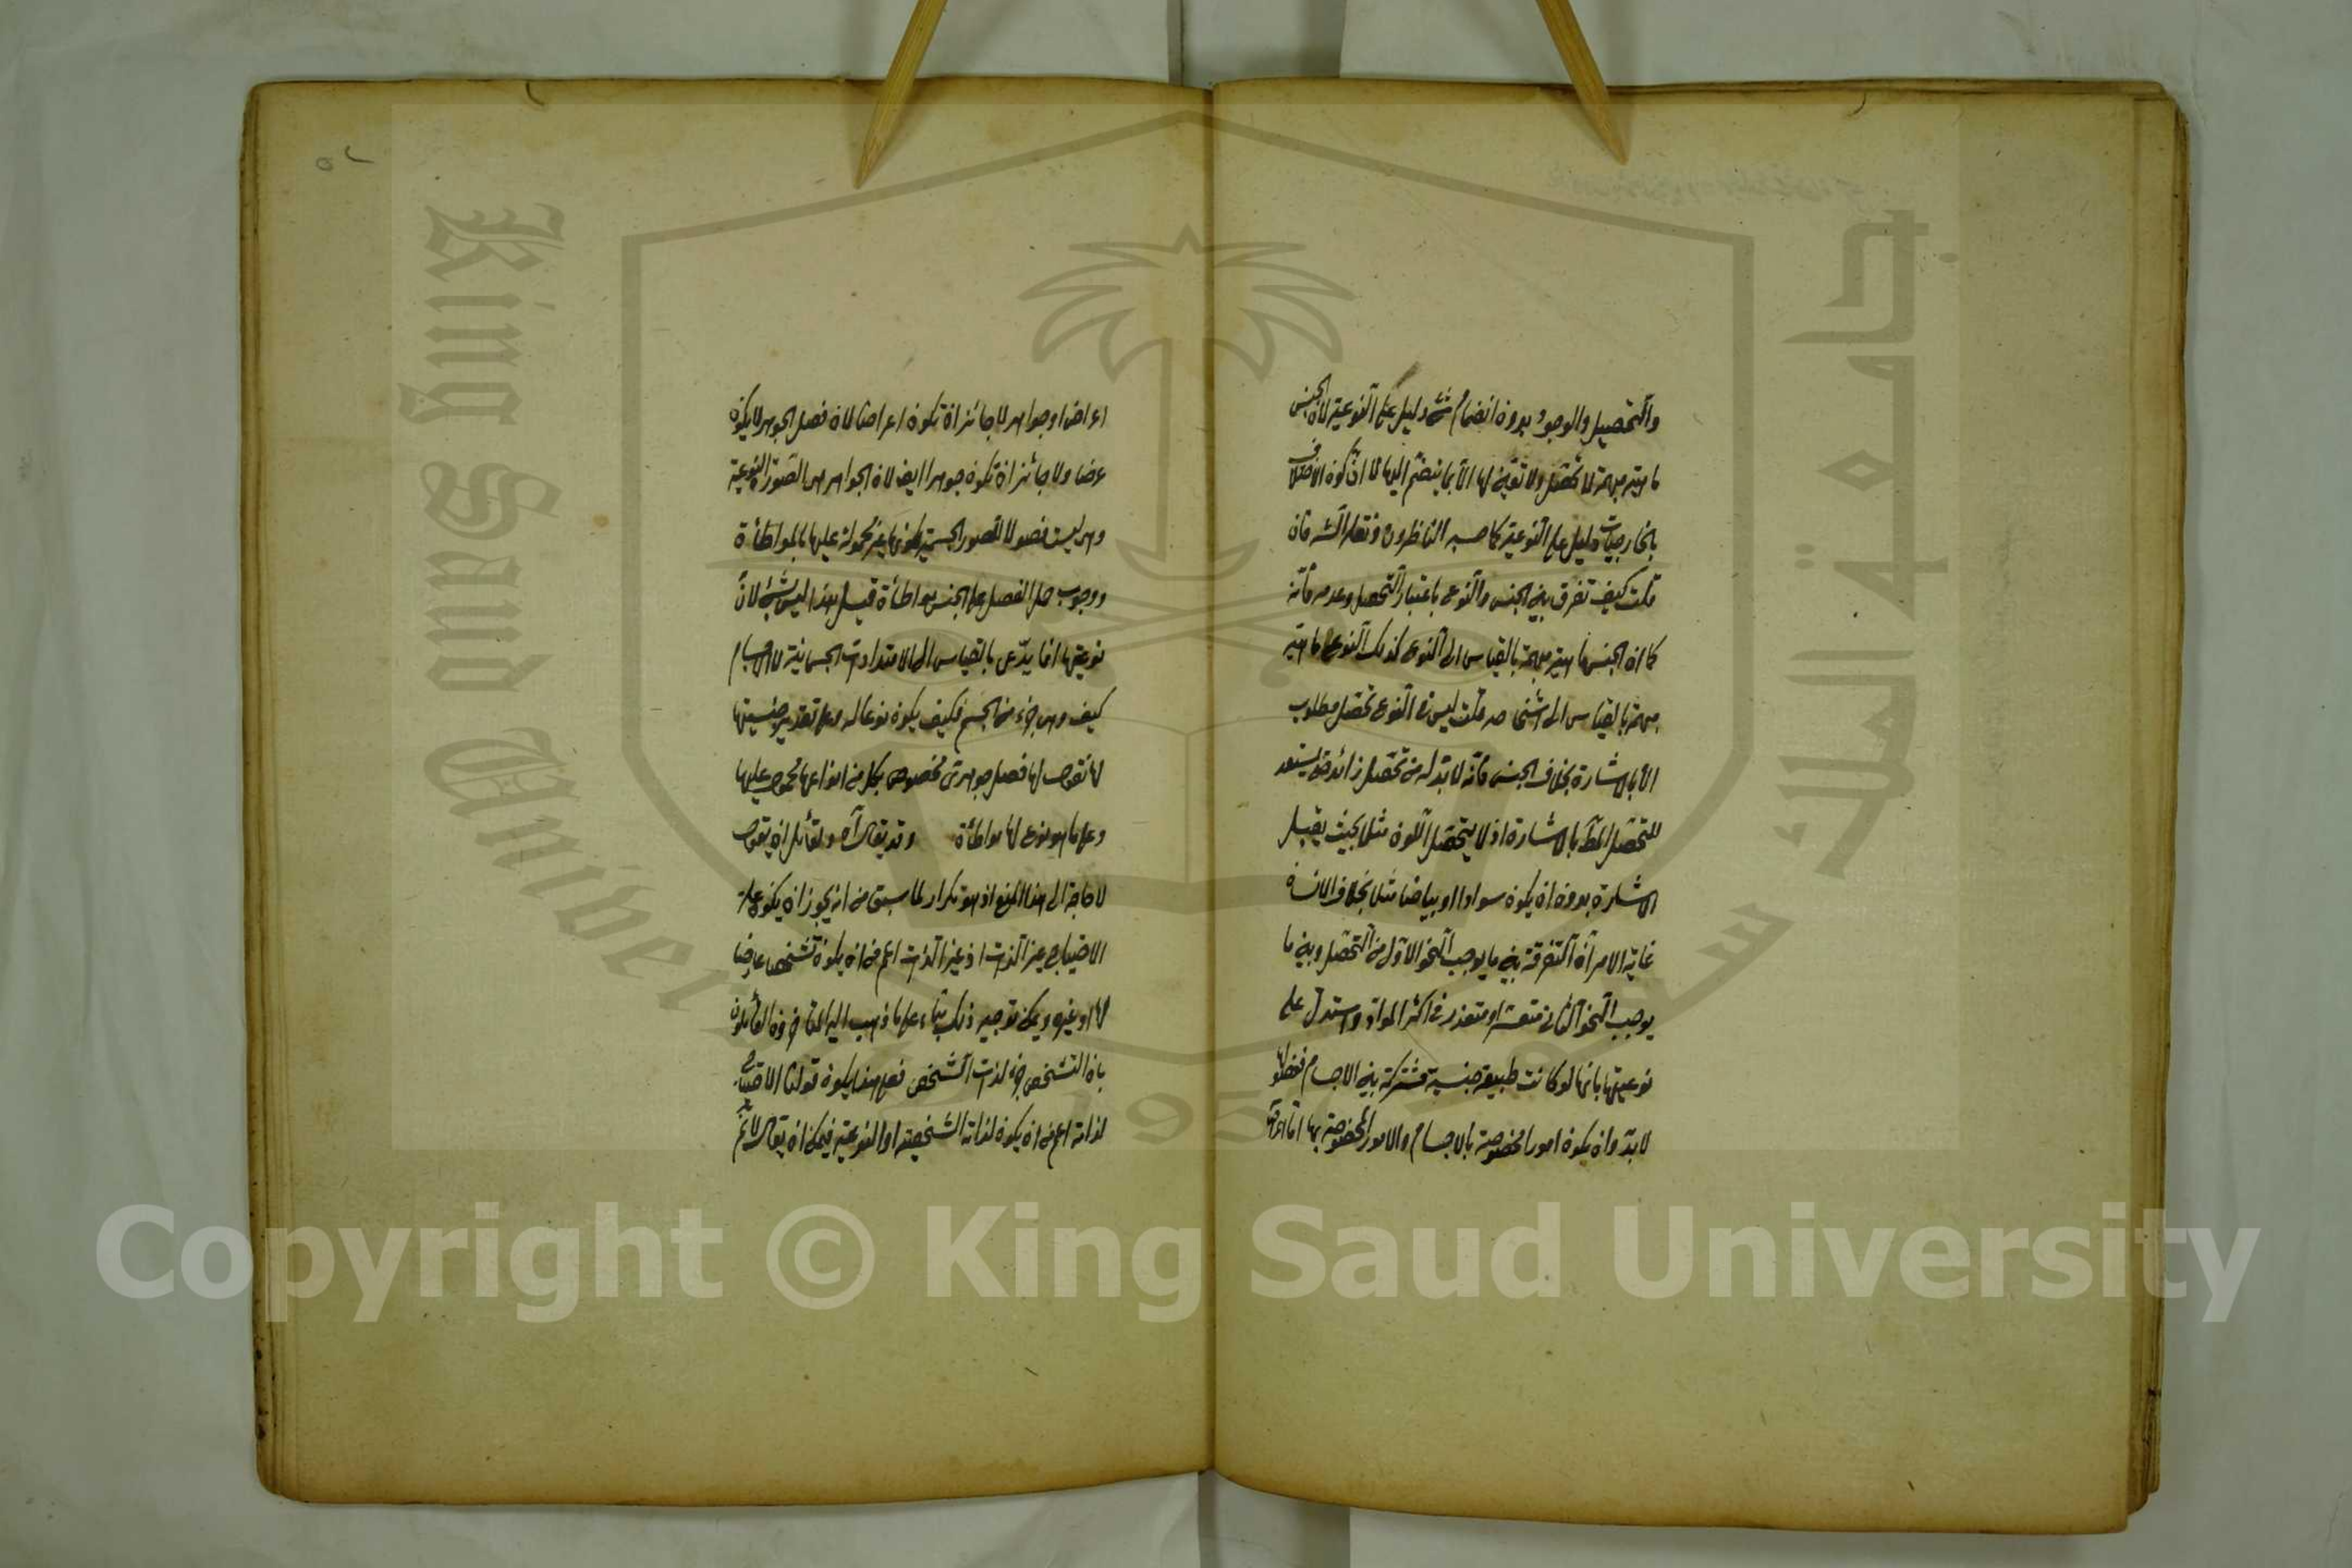 والتحصيل والوجود بدون انضمام شئ دليل على النوعية لان الجنس
ماهيته مبهمة لا تحصل ولا تعين لها الا بما ينضم اليها لما ان كون الاختلاف
بالخارجيات دليل على النوعية كما حسبه الناظرون
قلت كيف تفرق بين الجنس والنوع باعتبار التحصل وعدمه فانه
كما ان الجنس ماهيته مبهمة بالقياس الى النوع كذلك النوع ماهيته
مبهمة بالقياس الى اشخاصه قلت ليس في النوع تحصل مطلوب
الا بالاشارة بخلاف الجنس فانه لا بد له من تحصل زائد حتى يستعد
للتحصل بالاشارة اذ لا يتحصل اللون مثلا بحيث يقبل
الاشارة بدون ان يكون سوادا او بياضا مثلا بخلاف الانسان
غاية الامر ان التفرقة بين ما يوجب النحو الاول من التحصل وبين ما
يوجب النحو الثاني متعسر او متعذر في اكثر المواد واستدل على
نوعيتها بانها لو كانت طبيعة جنسية مشتركة بين الاجسام ففصولها
لا بد وان يكون امورا مخصوصة بالاجسام والامور المخصوصة بها اما
اعراض او جواهر لا جائز ان تكون اعراضا لان فصل الجوهر لا يكون
عرضا ولا جائز ان تكون جوهرا ايضا لان الجواهر هي الصور النوعية
وهي ليست فصولا للصور الجسمية لكونها غير محمولة عليها بالمواطأة
ووجوب حمل الفصل على الجنس مواطأة قيل هذا ليس بشئ لان
نوعيتها انما يدعى بالقياس الى الامتدادات الجسمانية لا الاجسام
كيف وهي جزء من الجسم فكيف يكون نوعا له وعلى تقدير جنسيتها
لها نقول لها فصل جوهري مخصوص بكل من انواعها محمول عليها
وعلى ما هو نوع لها مواطأة وقد يقال آه ولقائل ان يقول
لا حاجة الى هذا المنع اذ هو تكرار لما سبق من انه يجوز ان يكون علة
الاحتياج غير الذات اذ غير الذات اعم من ان يكون تشخصا عارضا
لها او غيره ويمكن توجيه ذلك بناء على ما ذهب اليه القائلون
بان التشخص جزء لذات الشخص فعلى هذا يكون قولنا الاحتياج
لذاته اعم من ان يكون لذاته الشخصية او النوعية فيمكن ان يقال لا نم